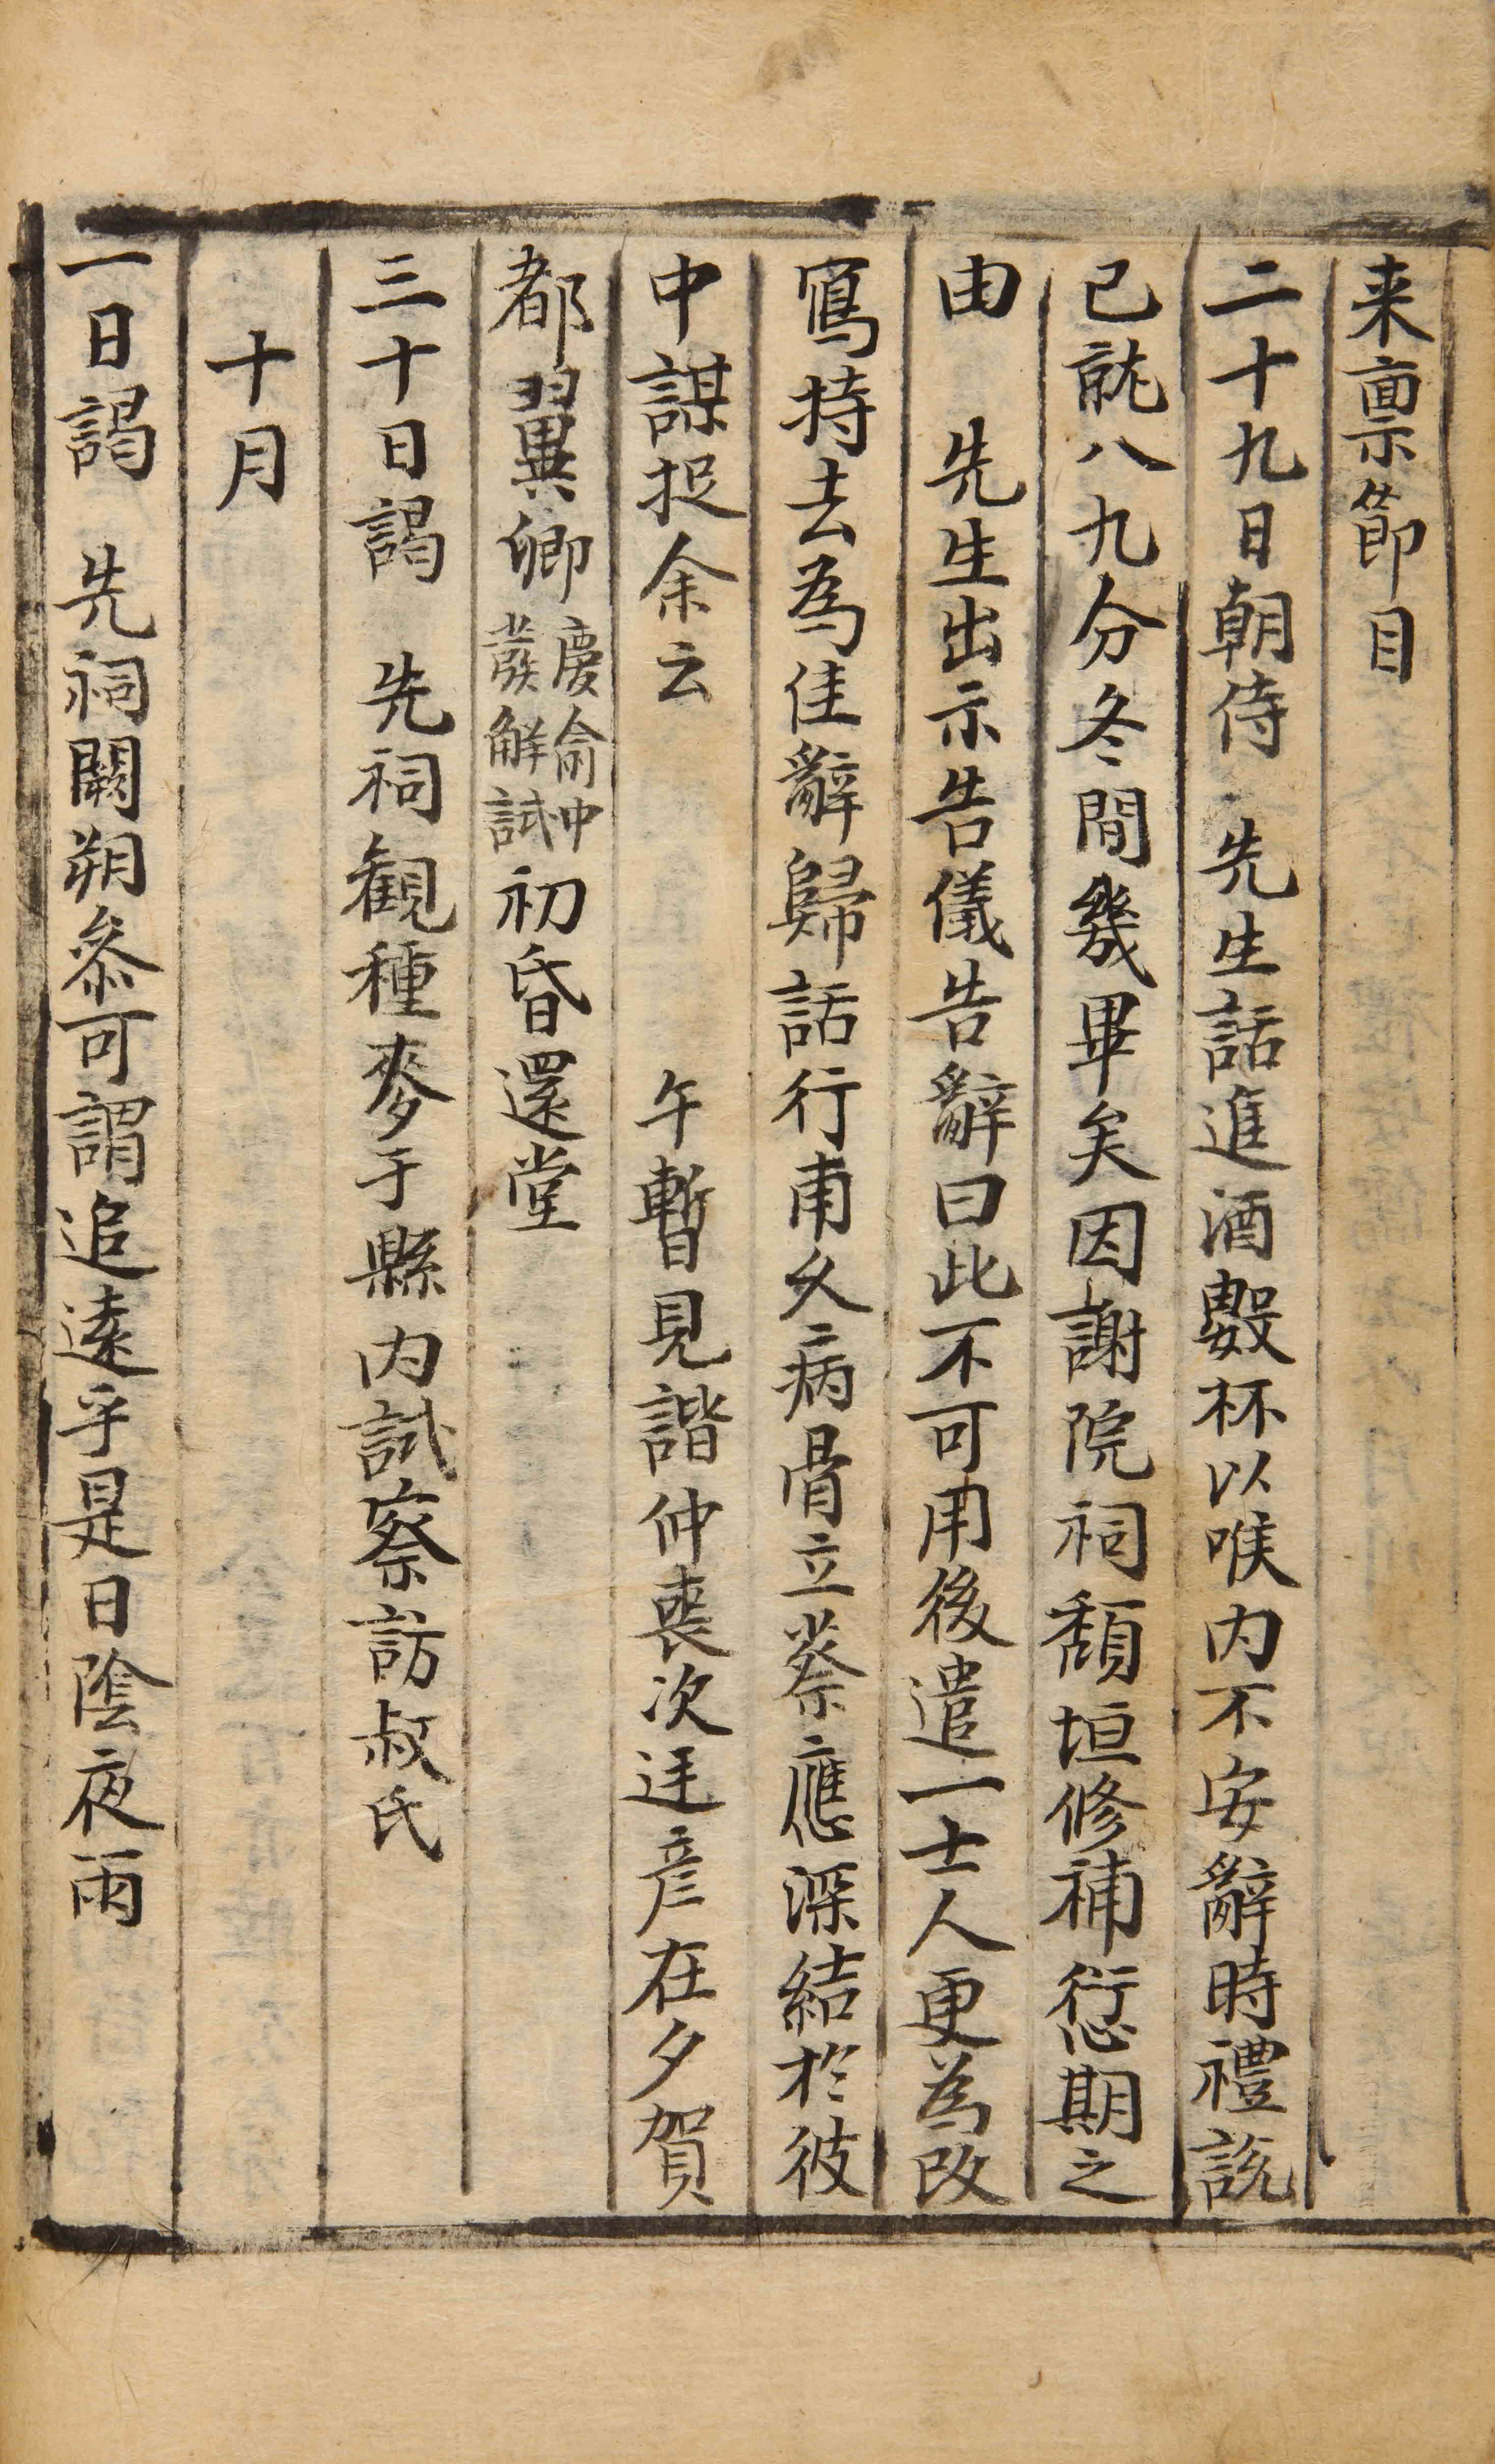 来稟節目
二十九日朝侍　先生話進酒數杯以喉内不安辭時禮說
已就八九分冬間幾畢矣因謝院祠頹垣修補愆期之
由　先生出示告儀告辭曰此不可用後遣一士人更為改
寫持去為佳辭歸話行甫久病骨立蔡應深結於彼
中謀捉余云　午暫見諧仲喪次廷彦在夕賀
都翼卿慶俞中蕟解試初昏還堂
三十日謁　先祠観種麥于縣内試察訪叔氏
十月
一日謁　先祠闕朔叅可謂追遠乎是日陰夜雨